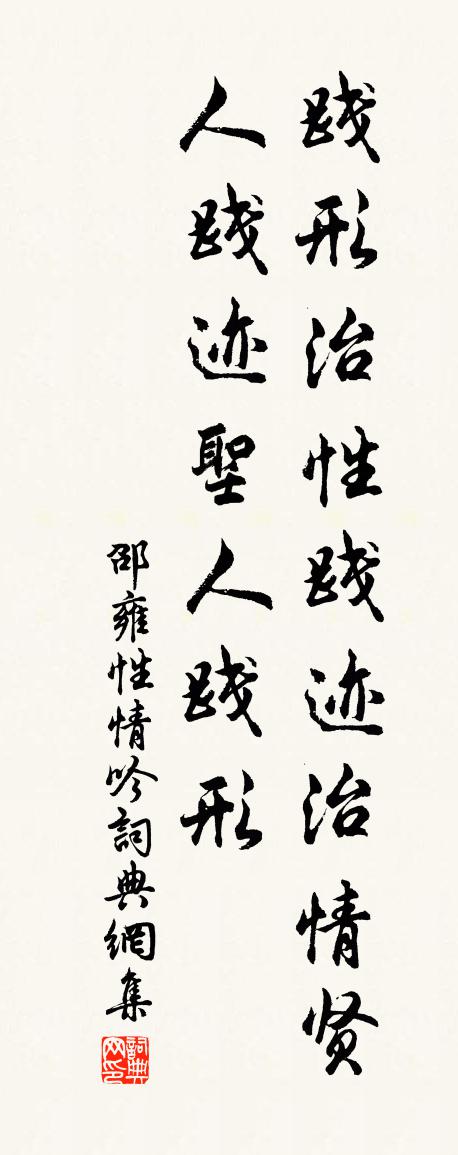 践形治性践迹治情贤
人践迹聖人践形
邵雍性情吟詞典網集
詞典网印